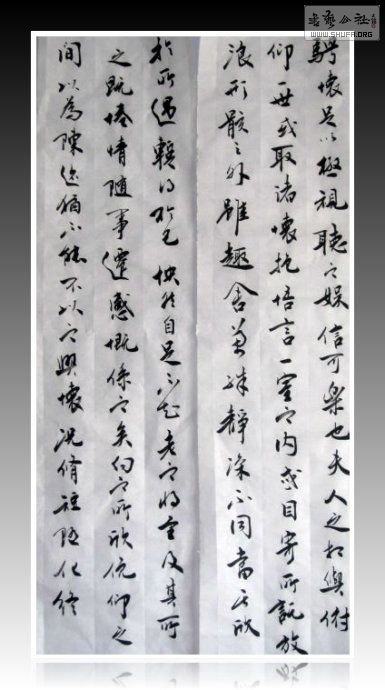 騁懷足以極視聽之娛信可樂也夫人之相與俯
仰一世或取諸懷抱悟言一室之內或因寄所託放
浪形骸之外雖趣舍萬殊靜躁不同當其欣
於所遇輙得於己怏然自足不知老之將至及其所
之既惓情隨事遷感慨係之矣向之所欣俛仰之
間以為陳迹猶不能不以之興懷況脩短隨化終
書藝公社
WWW.SHUFA.ORG